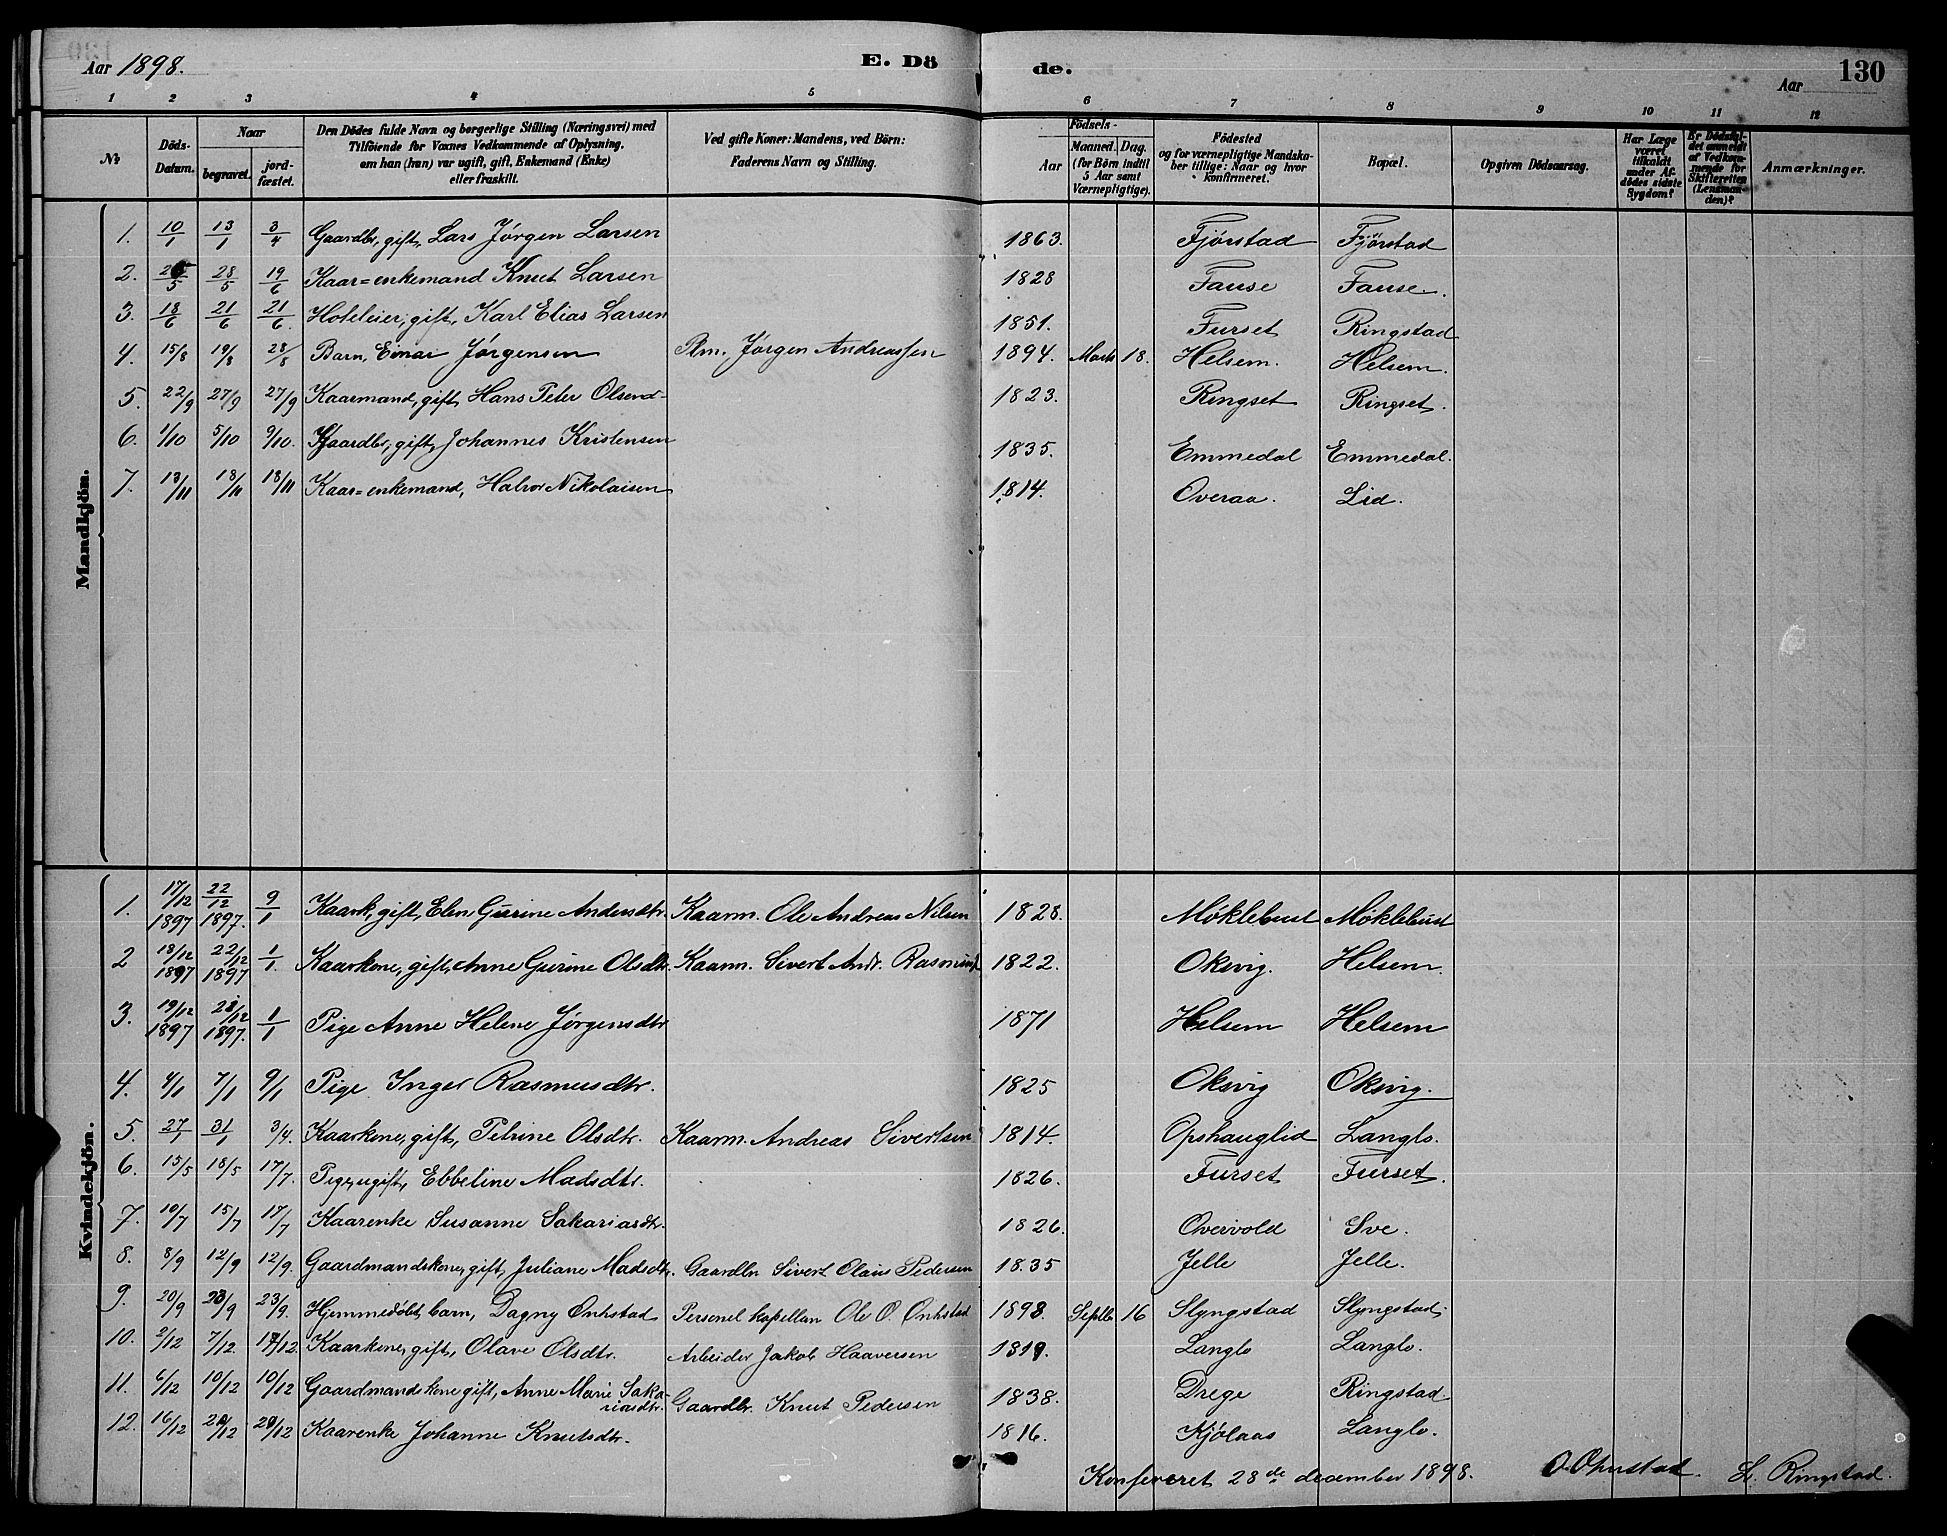 Aar 1898. E. Dö de. Aar 130
1 2 3 4 5 6 7 8 9 10 11 12
No Döds-Datum. Naar begravet. jordfæstet. Den Dödes fulde Navn og borgerlige Stilling (Næringsvei) med Tilföiende for Voxnes Vedkommende af Oplysning, om han (hun) var ugift, gift, Enkemand (Enke) eller fraskilt. Ved gifte Koner: Mandens, ved Börn: Faderens Navn og Stilling. Födsels- Aar Maaned. Dag. (for Börn indtil 5 Aar samt Værnepligtige). Födested og for værnepligtige Mandskaber tillige: Naar og hvor konfirmeret. Bopæl. Opgiven Dödsaarsag. Har Læge været tilkaldt under Afdödes sidste Sygdom? Er Dödsfaldet anmeldt af Vedkommende for Skifteretten (Lensmanden)? Anmærkninger.
Mandkjön.
1. 10/1 13/1 3/4 Gaardbr, gift, Lars Jørgen Larsen 1863. Fjørstad Fjørstad
2. 28/5 19/6 Kaar=enkemand Knut Larsen 1828 Fause Fause.
3. 18/6 21/6 21/6. Hoteleier, gift, Karl Elias Larsen 1851. Furset Ringstad
4. 15/8 19/8 28/8 Barn, Einar Jørgensen Pm. Jørgen Andreassen 1894. Marts 18. Helsem. Helsem.
5. 22/9 27/9 27/9 Kaarmand, gift, Hans Peter Olsen 1823. Ringset Ringset.
6. 1/10 5/10 9/10. Gaardbr, gift, Johannes Kristensen 1835. Emmedal Emmedal.
7. 13/11 18/11 18/11 Kaar=enkemand, Halvor Nikolaisen 1814. Overaa. Lid.
Kvindekjön.
1. 17/12 1897 22/12 1897. 9/1 Kaark, gift, Elen Gurine Andersdtr. Kaarm. Ole Andreas Nilsen 1828. Møklebust Møklebust
2 18/12 1897 22/12 1897 1/1. Kaarkone, gift, Anne Gurine Olsdtr. Kaarm. Sivert Andr. 1822. Oksvig. Helsem.
3. 19/12 1897 28/12 1897. 1/1 Pige Anne Helene Jørgensdtr 1871 Helsem Helsem
4. 4/1 7/1 9/1 Pige Inger Rasmusdtr. 1825 Oksvig Oksvig.
5. 27/1 31/1 3/4. Kaarkone, gift, Petrine Olsdtr. Kaarm. Andreas Sivertsen 1814. Opshauglid Langlo.
6. 15/5 18/5 17/7. Pige, ugift, Ebbeline Madsdtr. 1826. Furset Furset.
7. 10/7 15/7 17/7 Kaarenke Susanne Sakariasdtr. 1826. Overvold Sve.
8. 8/9 12/9 12/9. Gaardmandskone, gift, Juliane Madsdtr. Gaardbr Sivert Olaus Pedersen 1835 Jelle Jelle.
9. 20/9 23/9 23/9. Hjemmedøbt barn, Dagny Onhstad Personel kapellan Ole O. Onhstad 1898. Septbr 16 Slyngstad Slyngstad.
10. 2/12 7/12 17/12. Kaarkone, gift, Olave Olsdtr. Arbeider Jakob Haaversen 1819. Langlo Langlo.
11. 6/12 10/12 10/12 Gaardmandskone gift, Anne Marie Sakariasdtr. Gaardbr. Knut Pedersen 1838. Drege Ringstad.
12. 16/12 Kaarenke Johanne Knutsdtr. 1816. Kjølaas Langlo.
Konfereret 28de december 1898. L. Ringstad.